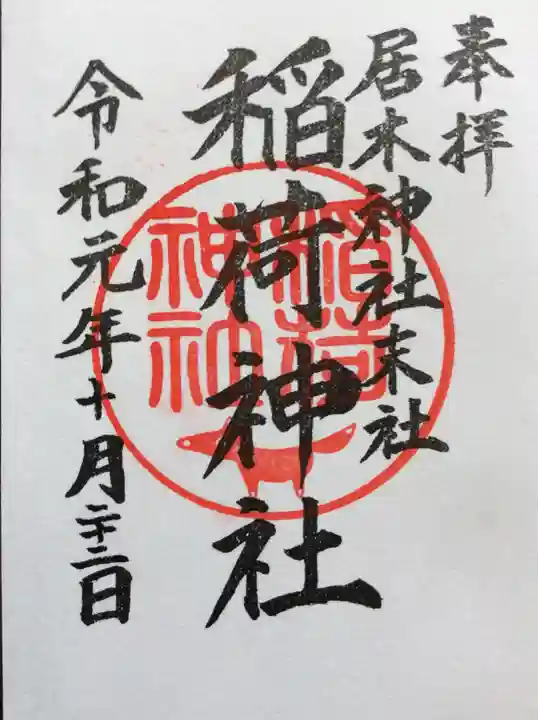 奉拝
居木神社末社
稲荷神社
稲荷神社
令和元年十月二十二日